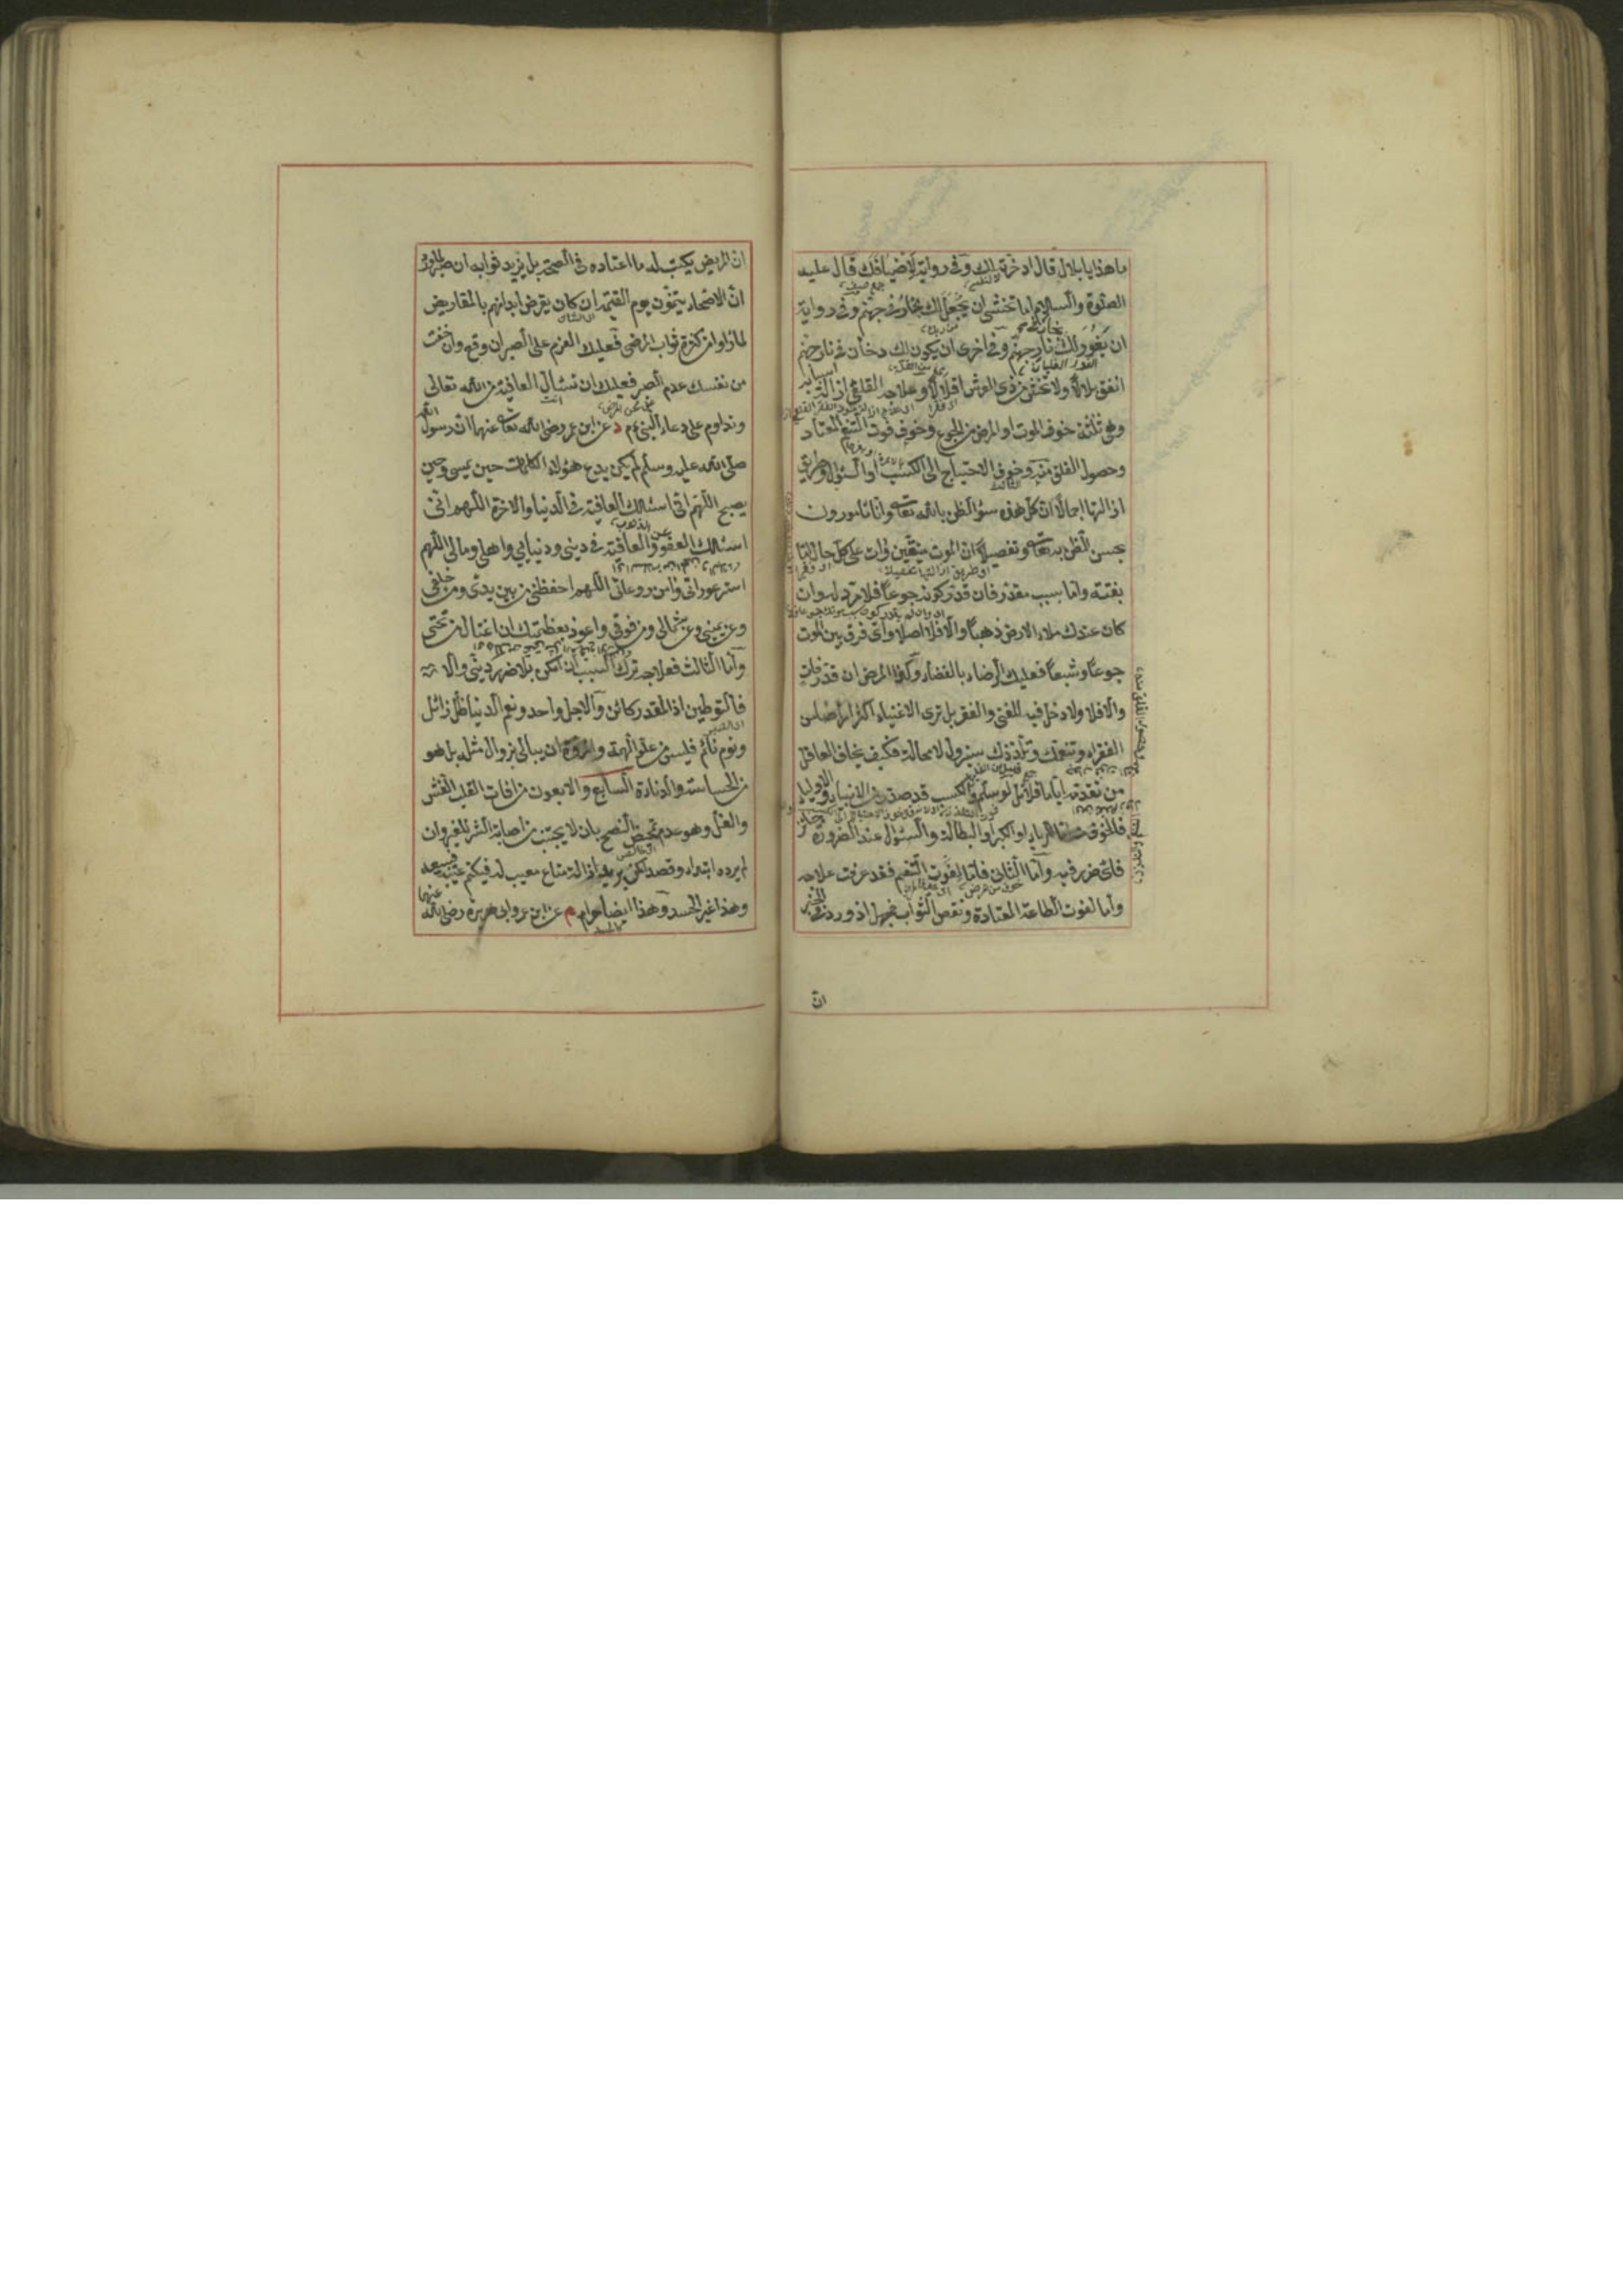 ما هذا يا بلال قال ادخرته لك وفى رواية لاضيافك قال عليه
الصلوة والسلام اما تخشى ان يجعل لك بخار فى جهنم وفى رواية
ان يفور لك نار جهنم وفى اخرى ان يكون لك دخان فى نار جهنم
انفق بلال ولا تخش من ذى العرش اقلالا وعلاجه القلعى ازالة اسبابه
وهى ثلثة خوف الموت او المرض من الجوع وخوف فوت التنعم المعتاد
وحصول القلق منه وخوف الاحتياج الى الكسب او السؤال وطريق
ازالتها اجمالا ان كل هذه سوء الظن بالله تعالى وانا مامورون
بحسن الظن به تعالى وتفصيلا ان الموت متيقن وات على كل حال اما
بغتة واما بسبب مقدر فان قدر كونه جوعا فلا مرد له وان
كان عندك ملاء الارض ذهبا والا فلا اصلا واى فرق بين الموت
جوعا وشبعا فعليك الرضاء بالقضاء وكذا المرض ان قدر فات
والا فلا ولا دخل فيه للغنى والفقر بل ترى الاغنياء اكثر امراضا من
الفقراء وتنعمك وتلذذك سيزول لا محالة فكيف يخاف العاقل
من تقدمه اياما قلائل لو سلم والكسب قد صدر من الانبياء والاولياء
فالخوف منه اما للرياء او الكبر او البطالة والسئوال عند الضرورة
فاى ضرر فيه واما الثانى فاما لفوت التنعم فقد عرفت علاجه
واما لفوت الطاعة المعتادة ونقص الثواب فجهل اذ ورد فى الخبر
ان
ان المريض يكتب له ما اعتاده فى الصحة بل يزيد ثوابه ان صبر
ان الاصحاء يتمنون يوم القيمة ان كان يقرض ابدانهم بالمقاريض
لما راوا من كثرة ثواب المرضى فعليك العزم على الصبر ان وقع وان خفت
من نفسك عدم الصبر فعليك ان تسئال العافية من الله تعالى
وتداوم على دعاء النبى عم د عن ابن عمر رضى الله تعالى عنهما ان رسول الله
صلى الله عليه وسلم لم يكن يدع هؤلاء الكلمات حين يمسى وحين
يصبح اللهم انى اسئالك العافية فى الدنيا والاخرة اللهم انى
اسئالك العفو والعافية فى دينى ودنيايى واهلى ومالى اللهم
استر عوراتى وامن روعاتى اللهم احفظنى من بين يدى ومن خلفى
وعن يمينى وعن شمالى ومن فوقى واعوذ بعظمتك ان اغتال من تحتى
واما الثالث فعلاجه ترك السبب ان امكن بلا ضرر دينى والا
فالتوطين اذ المقدر كائن والاجل واحد ونعم الدنيا ظل زائل
ونوم نائم فليس من علو الهمة والمروة ان يبالى بزوال مثله بل هو
من الخساسة والدناءة السابع والاربعون من افات القلب الغش
والغل وهو عدم تمحيض النصح بان لا يجتنب من اصابة الشر للغير وان
لم يرده ابتداء وقصدا كمن يريد ازالة متاع معيب له فيكتم عيبه فيبيعه
وهذا غير الحسد وهذا ايضا حرام م عن ابن عمر وابى هريرة رضى الله عنهما